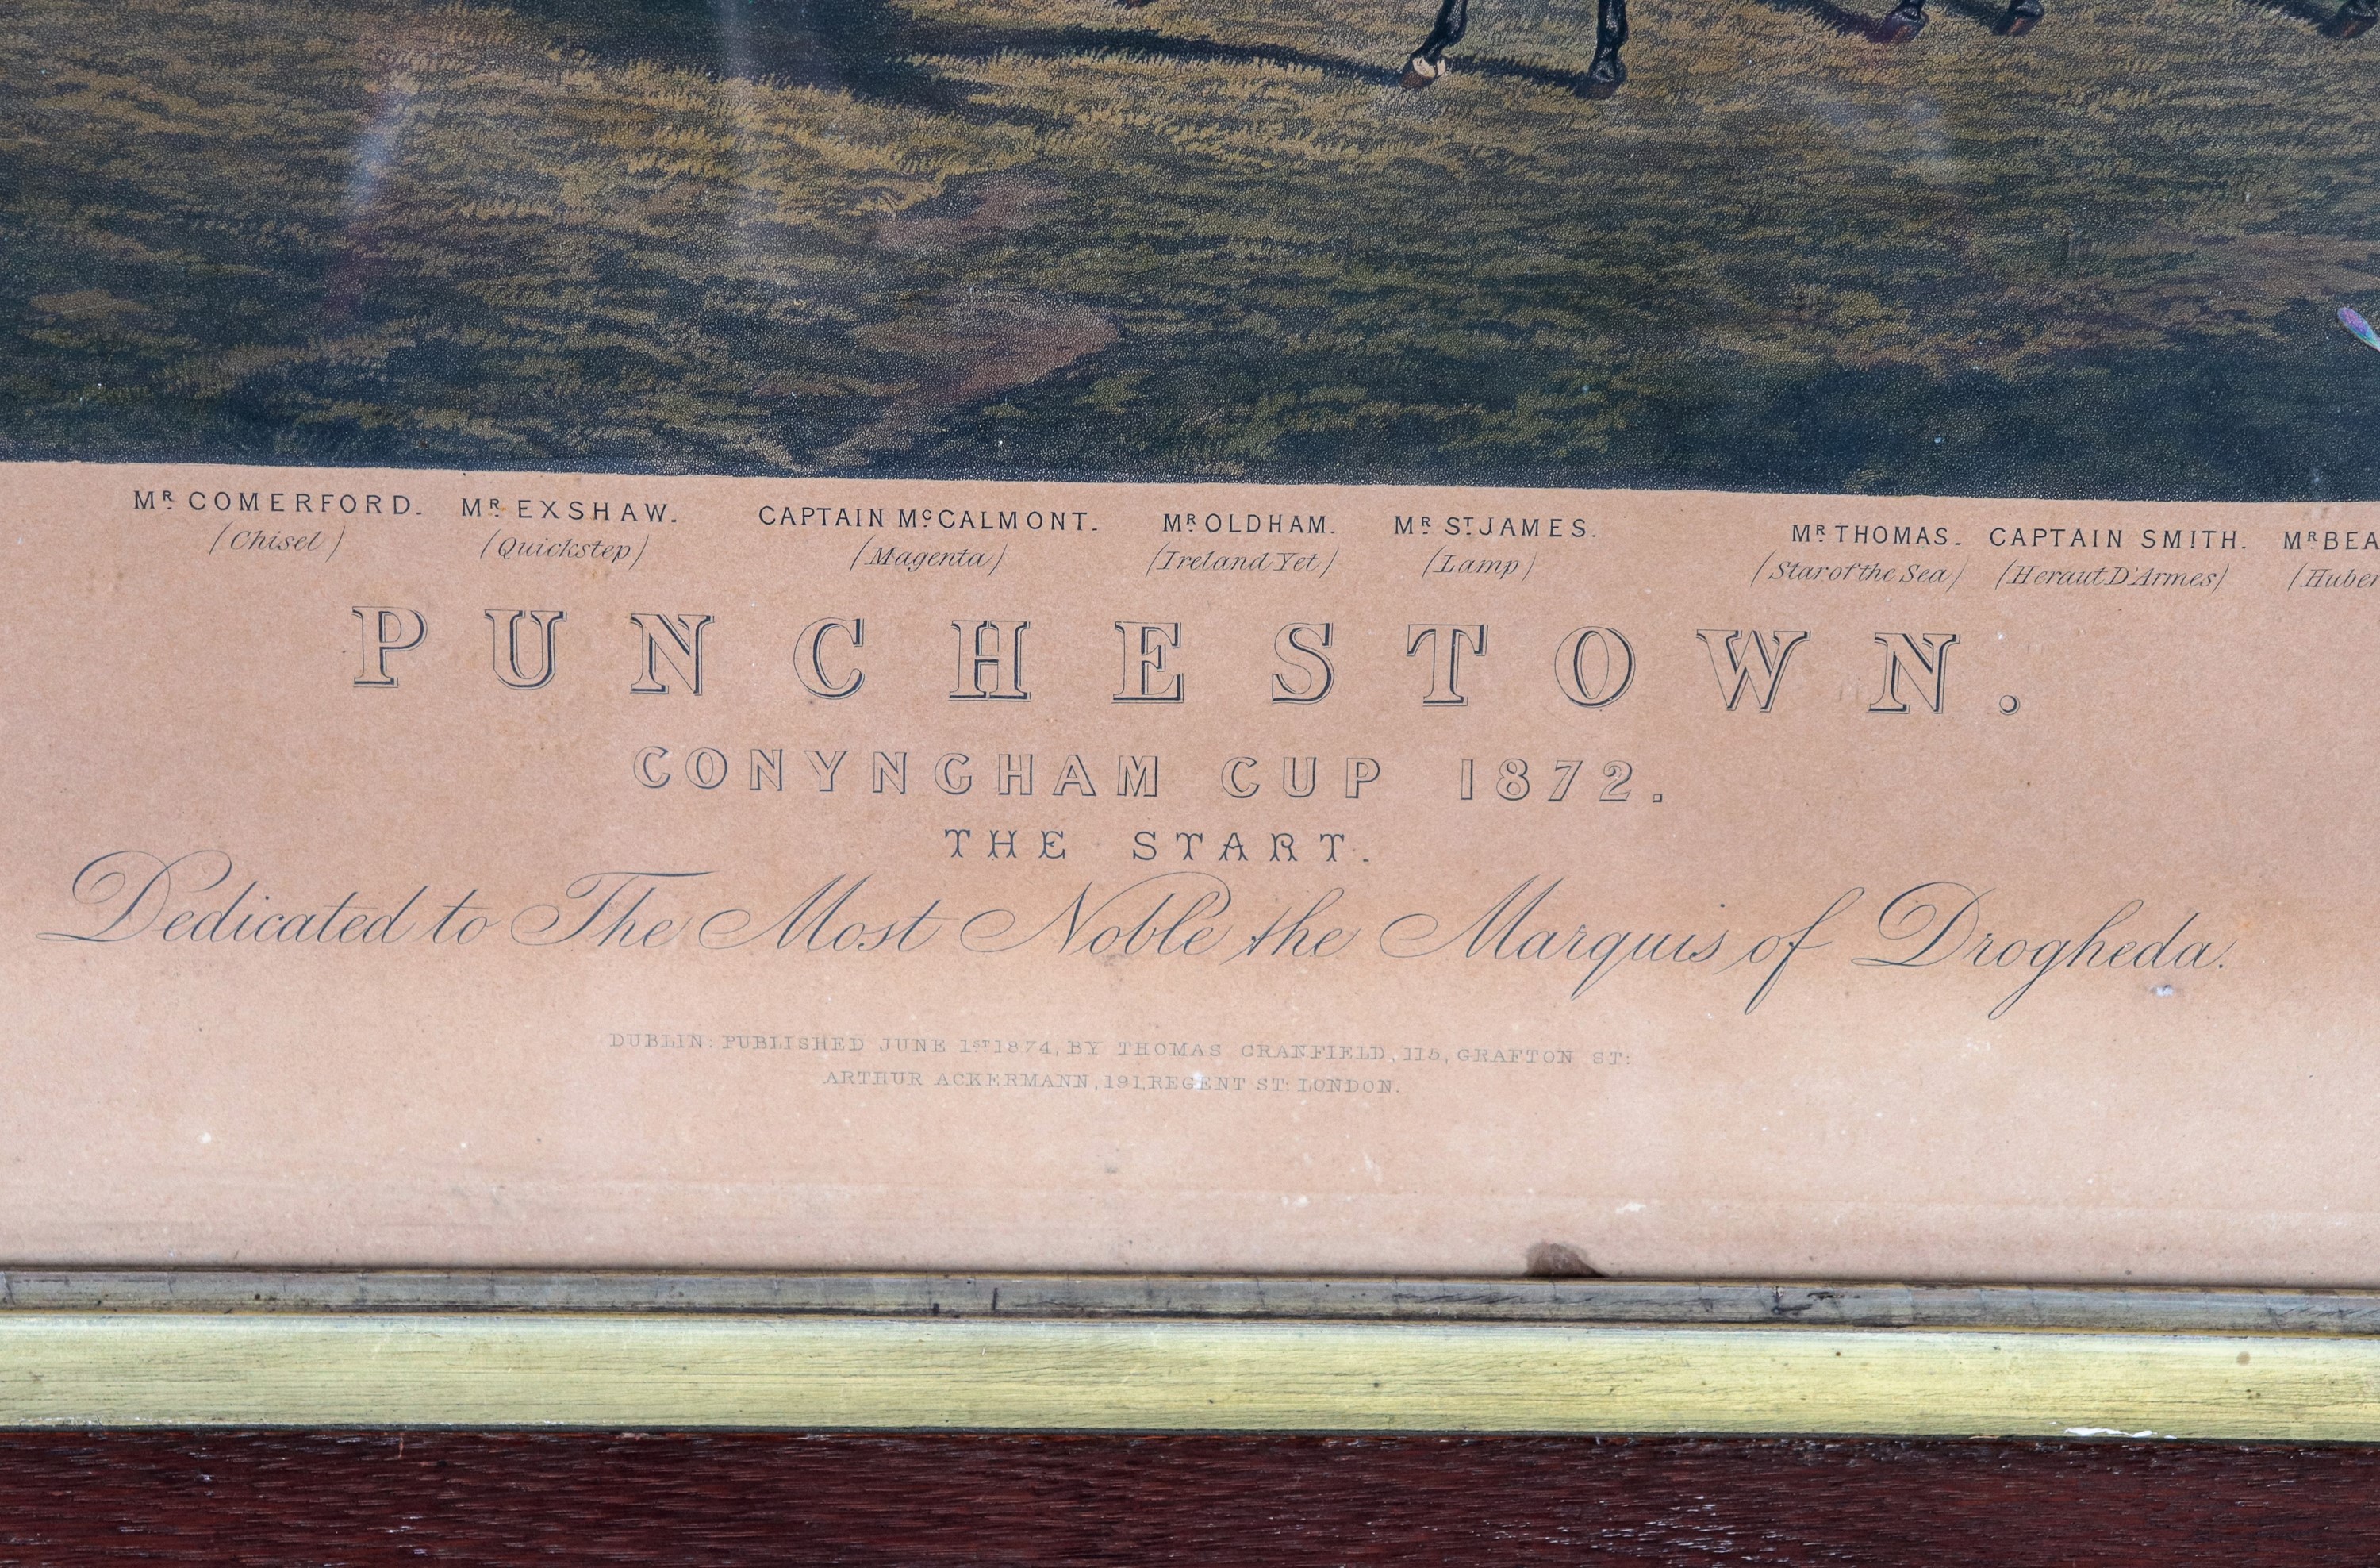 MR. COMERFORD. MR. EXSHAW. CAPTAIN McCALMONT. MR. OLDHAM. MR. ST. JAMES. MR. THOMAS. CAPTAIN SMITH.
(Chisel) (Quickstep) (Magenta) (Ireland Yet) (Lamp) (Star of the Sea) (Heraut D'Armes)
PUNCHESTOWN.
CONYNGHAM CUP 1872.
THE START.
Dedicated to The Most Noble the Marquis of Drogheda.
DUBLIN: PUBLISHED JUNE 1ST 1874, BY THOMAS CRANFIELD, 115, GRAFTON ST:
ARTHUR ACKERMANN, 191, REGENT ST: LONDON.